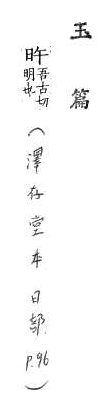 玉篇
旿吾古切明也(澤存堂本 日部 p.96)